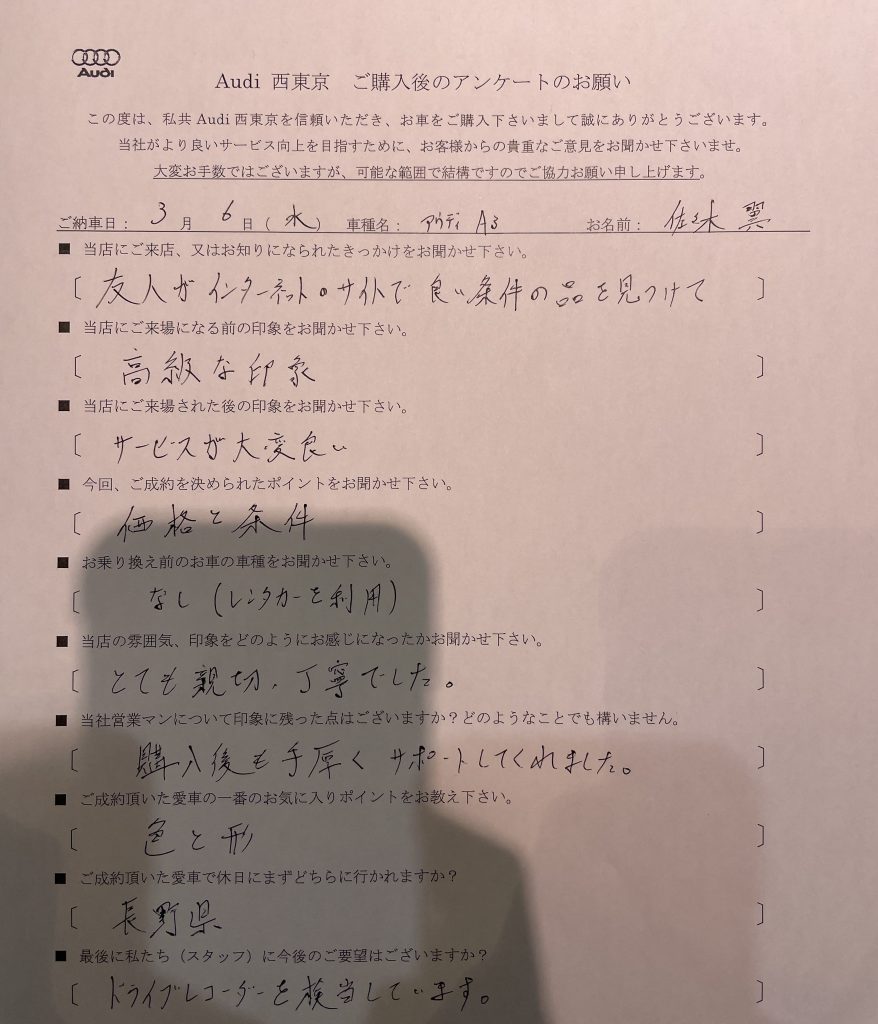 Audi
Audi 西東京　ご購入後のアンケートのお願い
この度は、私共 Audi 西東京を信頼いただき、お車をご購入下さいまして誠にありがとうございます。
当社がより良いサービス向上を目指すために、お客様からの貴重なご意見をお聞かせ下さいませ。
大変お手数ではございますが、可能な範囲で結構ですのでご協力お願い申し上げます。
ご納車日： 3 月 6 日（ 水 ） 車種名： アウディ A3 お名前： 佐々木 翼
■ 当店にご来店、又はお知りになられたきっかけをお聞かせ下さい。
〔 友人がインターネット・サイトで良い条件の品を見つけて 〕
■ 当店にご来場になる前の印象をお聞かせ下さい。
〔 高級な印象 〕
■ 当店にご来場された後の印象をお聞かせ下さい。
〔 サービスが大変良い 〕
■ 今回、ご成約を決められたポイントをお聞かせ下さい。
〔 価格と条件 〕
■ お乗り換え前のお車の車種をお聞かせ下さい。
〔 なし（レンタカーを利用） 〕
■ 当店の雰囲気、印象をどのようにお感じになったかお聞かせ下さい。
〔 とても親切、丁寧でした。 〕
■ 当社営業マンについて印象に残った点はございますか？どのようなことでも構いません。
〔 購入後も手厚くサポートしてくれました。 〕
■ ご成約頂いた愛車の一番のお気に入りポイントをお教え下さい。
〔 色と形 〕
■ ご成約頂いた愛車で休日にまずどちらに行かれますか？
〔 長野県 〕
■ 最後に私たち（スタッフ）に今後のご要望はございますか？
〔 ドライブレコーダーを検当しています。 〕